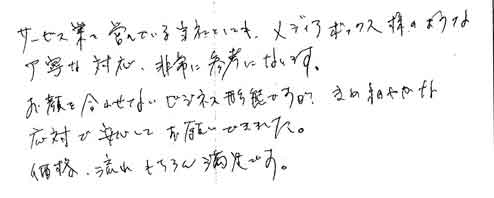 サービス業を営んでいる当社としても、メディアボックス様のような
丁寧な対応、非常に参考になります。
お顔を合わせないビジネス形態ですが、きめ細やかな
応対で安心してお願いできました。
価格、流れもちろん満足です。